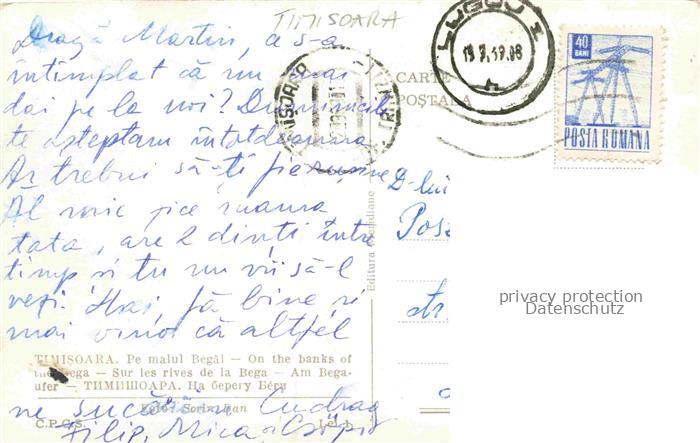 TIMISOARA
Dragă Martin, ce s-a
întîmplat că nu mai
dai pe la noi? Duminicile
te așteptam întotdeauna
Ar trebui să-ți fie rușine
Al mic zice mama
tata, are 2 dinți între
timp și tu nu vii să-l
vezi. Hai, fă bine și
mai vino că altfel
ne sucărim Cu drag
Filip, Mica
CARTE
POȘTALA
LUGOJ 1
40
BANI
POSTA ROMANA
Editura Meridiane
D-lui
TIMIȘOARA. Pe malul Begăi — On the banks of
the Bega — Sur les rives de la Bega — Am Bega-
ufer — ТИМИШОАРА. На берегу Беги
Foto: Sorin Dan
C.P.C.S.
Lei 1
privacy protection
Datenschutz